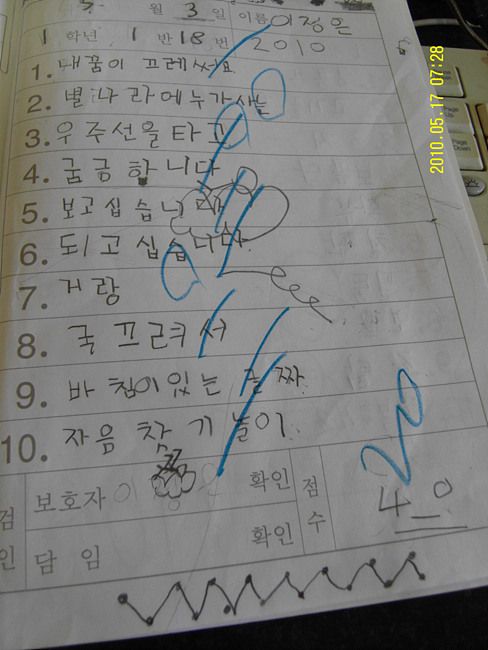 5 월 3 일 이름 이정은
1 학년 1 반 18 번 2010
1. 내꿈이 프레써요
2. 별나라에누가사는
3. 우주선을타고
4. 굼금합니다
5. 보고십습니다
6. 되고십습니다
7. 거랑
8. 국프러커서
9. 바침이있는글짜
10. 자음찾기놀이
검인
보호자 확인
담임 확인
점수
20
40
2010.05.17 07:28
Page Up
Page Down